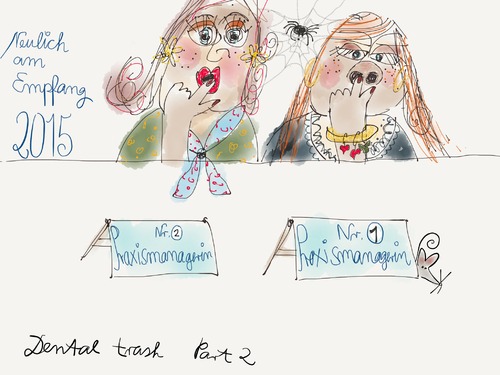 Neulich
am
Empfang
2015
Nr. 2
Praxismanagerin
Nr. 1
Praxismanagerin
Dental trash Part 2